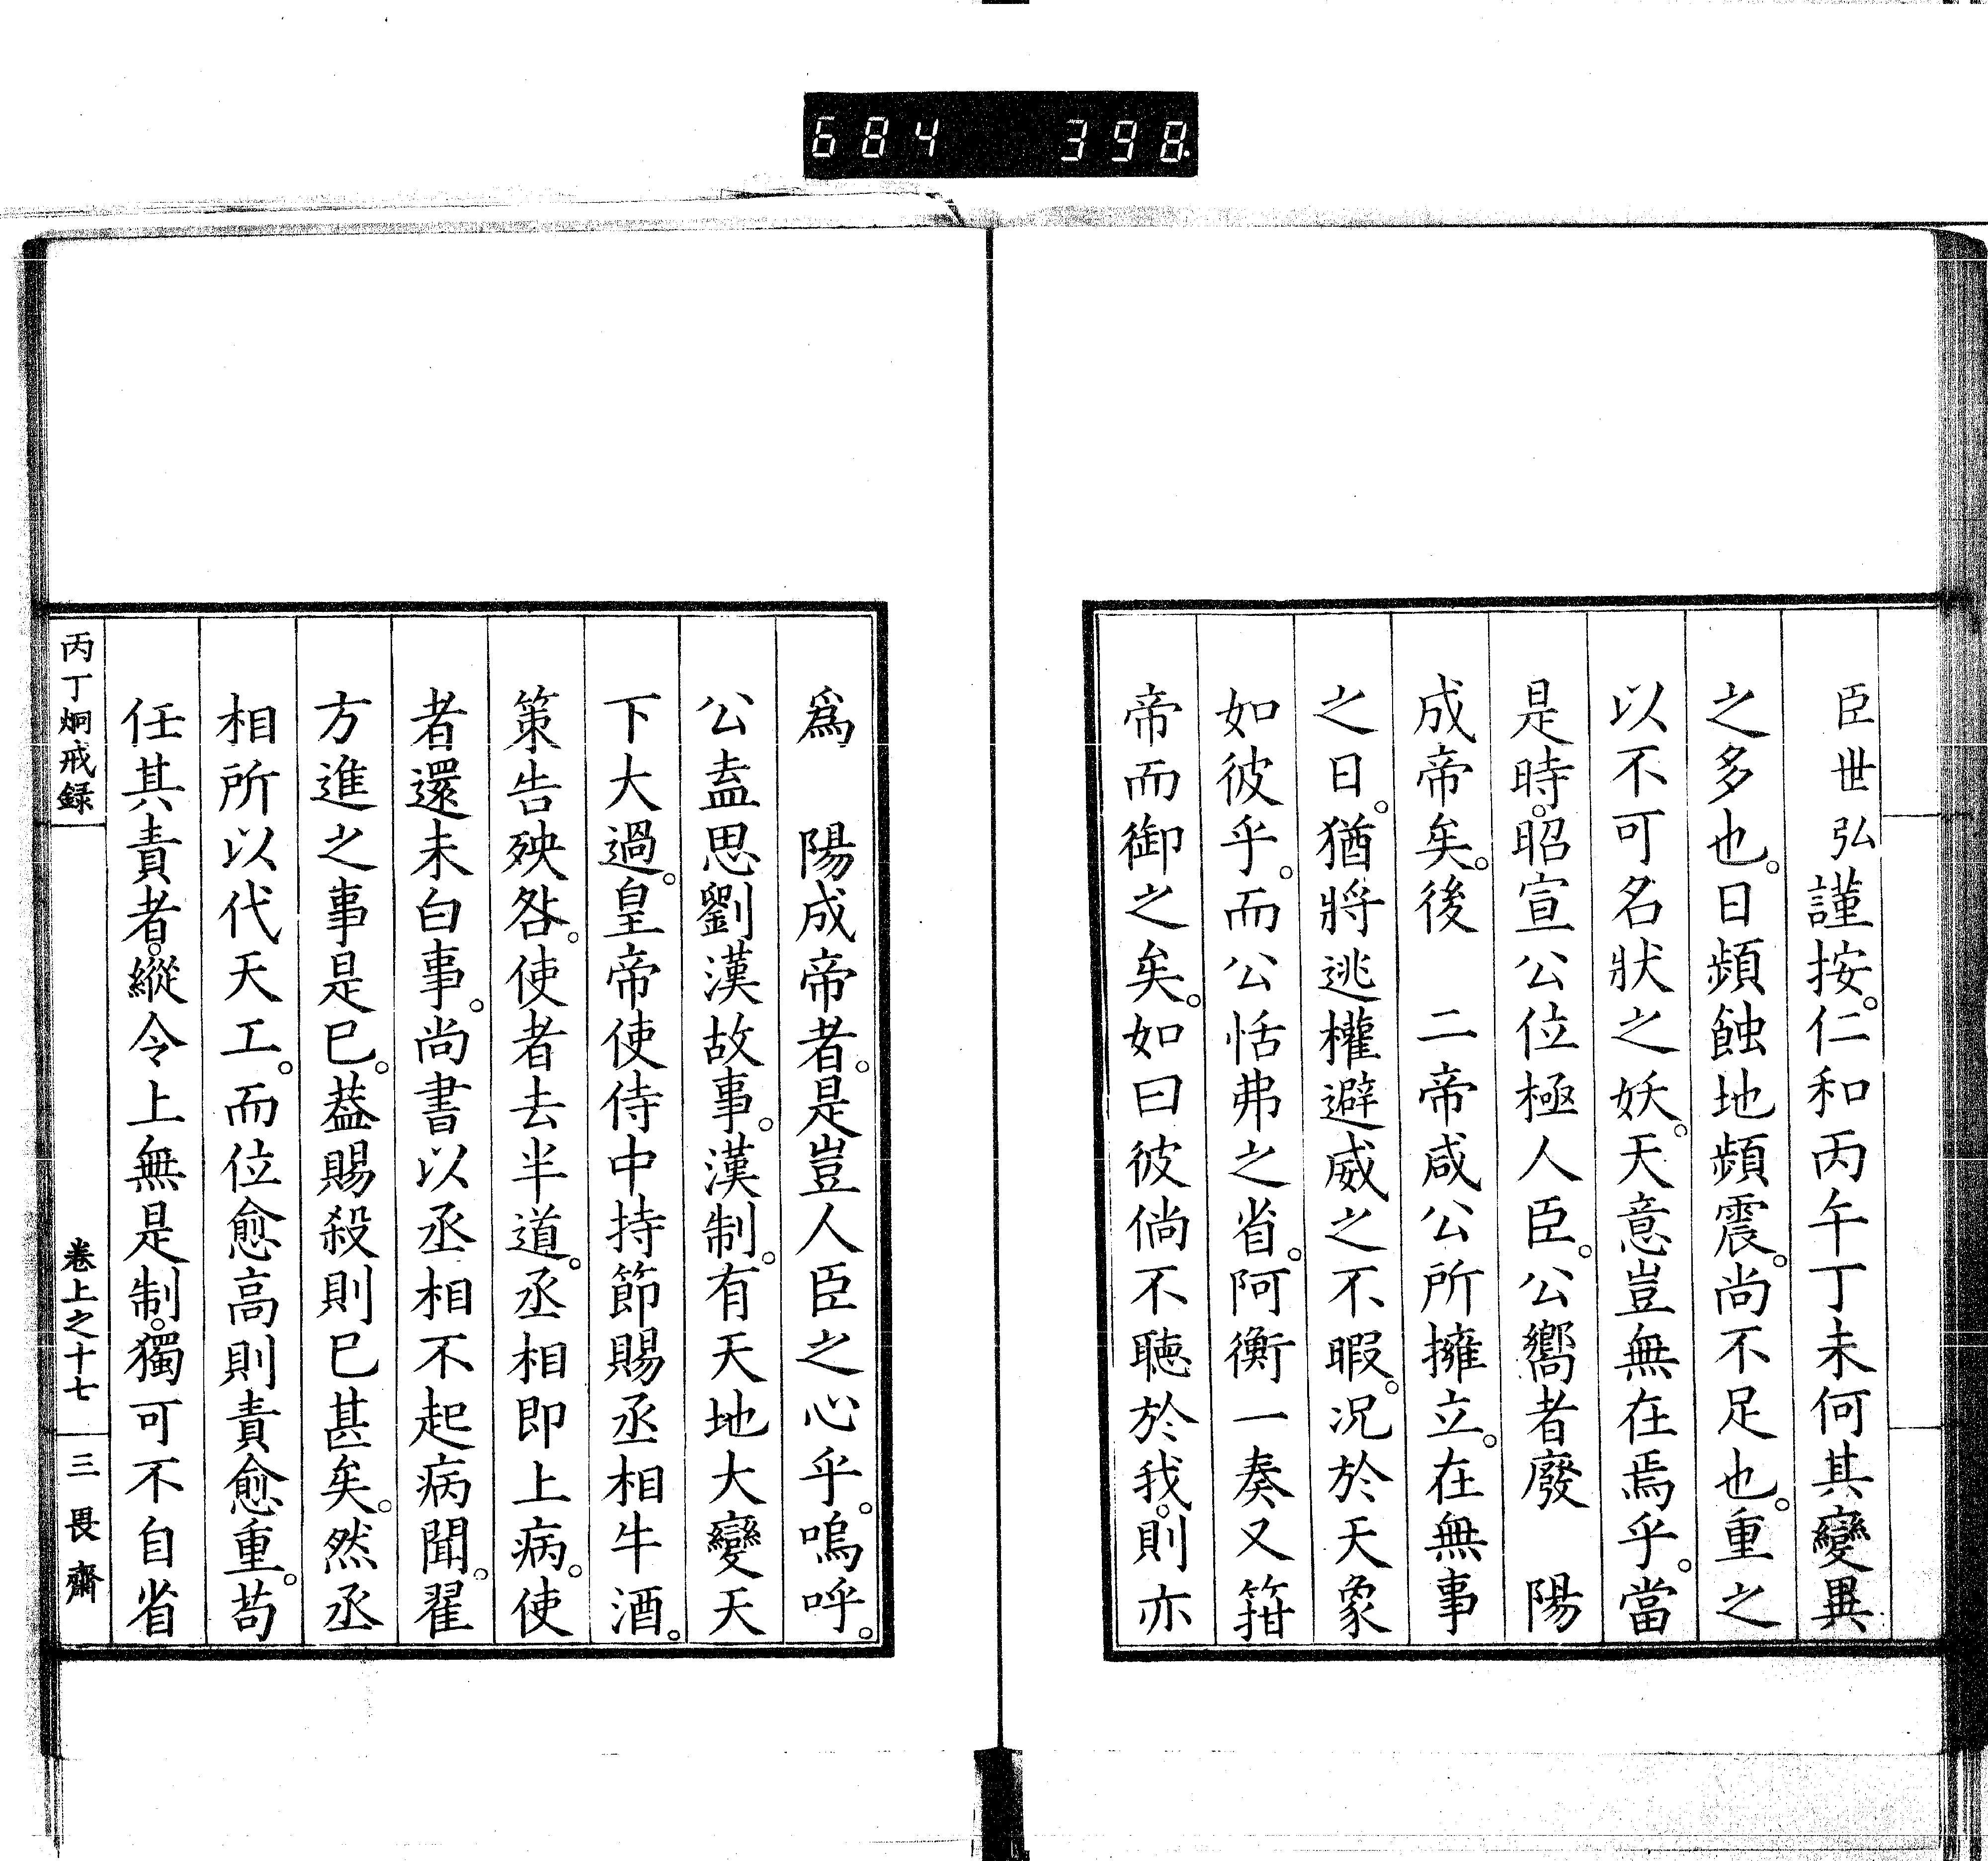 684 398
臣世弘謹按。仁和丙午丁未何其變異
之多也。日頻蝕地頻震。尚不足也。重之
以不可名狀之妖。天意豈無在焉乎。當
是時。昭宣公位極人臣。公嚮者廢　陽
成帝矣。後　二帝咸公所擁立。在無事
之日。猶將逃權避威之不暇。況於天象
如彼乎。而公恬弗之省。阿衡一奏又箝
帝而御之矣。如曰彼倘不聽於我。則亦
爲　陽成帝者。是豈人臣之心乎。嗚呼。
公盍思劉漢故事。漢制。有天地大變天
下大過。皇帝使侍中持節賜丞相牛酒。
策告殃咎。使者去半道。丞相即上病。使
者還未白事。尚書以丞相不起病聞。翟
方進之事是已。葢賜殺則已甚矣。然丞
相所以代天工。而位愈高則責愈重。苟
任其責者。縱令上無是制。獨可不自省
丙丁炯戒録　卷上之十七　三畏齋